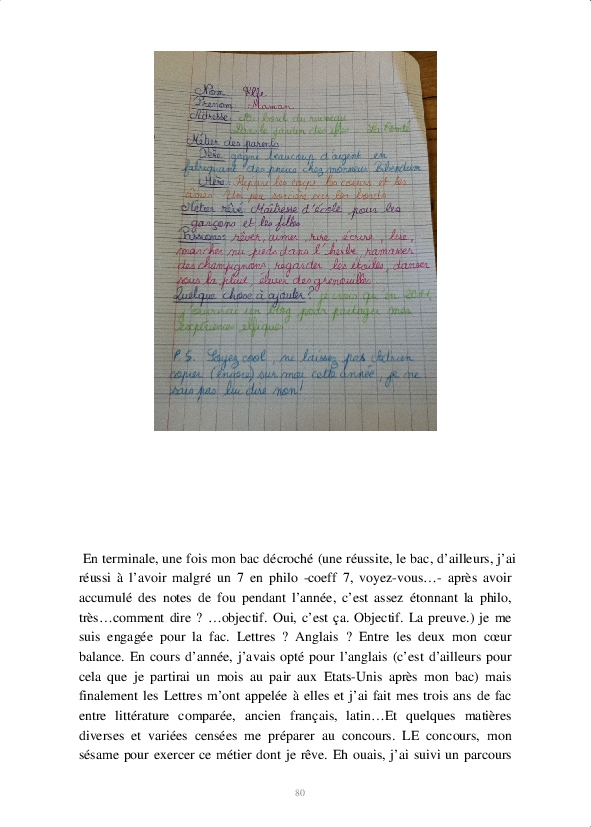 Nom : Elfe
Prénom : Maman
Adresse : Au bord du ruisseau
Dans le jardin des elfes
Métier des parents
Père : gagne beaucoup d'argent en
fabriquant des pneus chez monsieur Bibendum
Mère : Répare les corps, les cœurs et les
Un peu sorcière sur les bords
Métier rêvé : Maîtresse d'école pour les
garçons et les filles
Passions : rêver, aimer, rire, écrire, lire,
marcher nu pieds dans l'herbe, ramasser
des champignons, regarder les étoiles, danser
sous la pluie, élever des grenouilles
Quelque chose à ajouter ? je crois qu'en 2011
j'ouvrirai un blog pour partager mon
expérience elfique
P.S. Soyez cool, ne laissez pas Adrien
copier (encore) sur moi cette année, je ne
sais pas lui dire non !
En terminale, une fois mon bac décroché (une réussite, le bac, d'ailleurs, j'ai
réussi à l'avoir malgré un 7 en philo -coeff 7, voyez-vous…- après avoir
accumulé des notes de fou pendant l'année, c'est assez étonnant la philo,
très…comment dire ? …objectif. Oui, c'est ça. Objectif. La preuve.) je me
suis engagée pour la fac. Lettres ? Anglais ? Entre les deux mon cœur
balance. En cours d'année, j'avais opté pour l'anglais (c'est d'ailleurs pour
cela que je partirai un mois au pair aux Etats-Unis après mon bac) mais
finalement les Lettres m'ont appelée à elles et j'ai fait mes trois ans de fac
entre littérature comparée, ancien français, latin…Et quelques matières
diverses et variées censées me préparer au concours. LE concours, mon
sésame pour exercer ce métier dont je rêve. Eh ouais, j'ai suivi un parcours
80